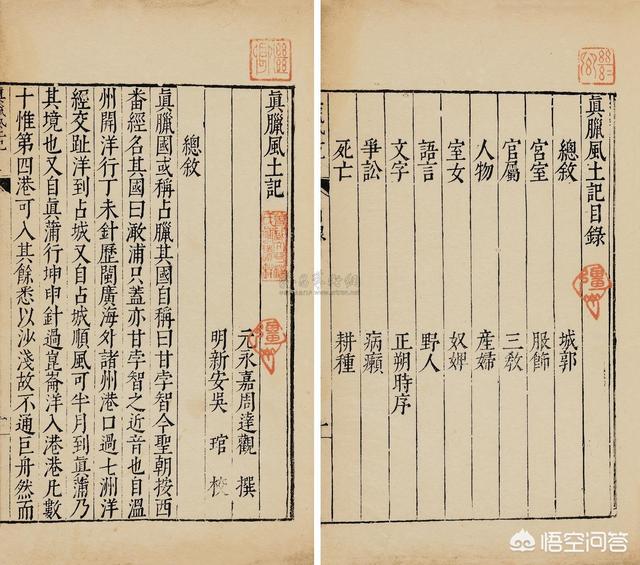 眞臘風土記目錄
總敘 城郭
宮室 服飾
官屬 三教
人物 產婦
室女 奴婢
語言 野人
文字 正朔時序
爭訟 病癩
死亡 耕種
眞臘風土記
元永嘉周達觀 撰
明新安吳 琯 校
總敘
眞臘國或稱占臘其國自稱曰甘孛智今聖朝按西
番經名其國曰澉浦只蓋亦甘孛智之近音也自溫
州開洋行丁未針歷閩廣海外諸州港口過七洲洋
經交趾洋到占城又自占城順風可半月到眞蒲乃
其境也又自眞蒲行坤申針過崑崙洋入港港凡數
十惟第四港可入其餘悉以沙淺故不通巨舟然而
悟空问答